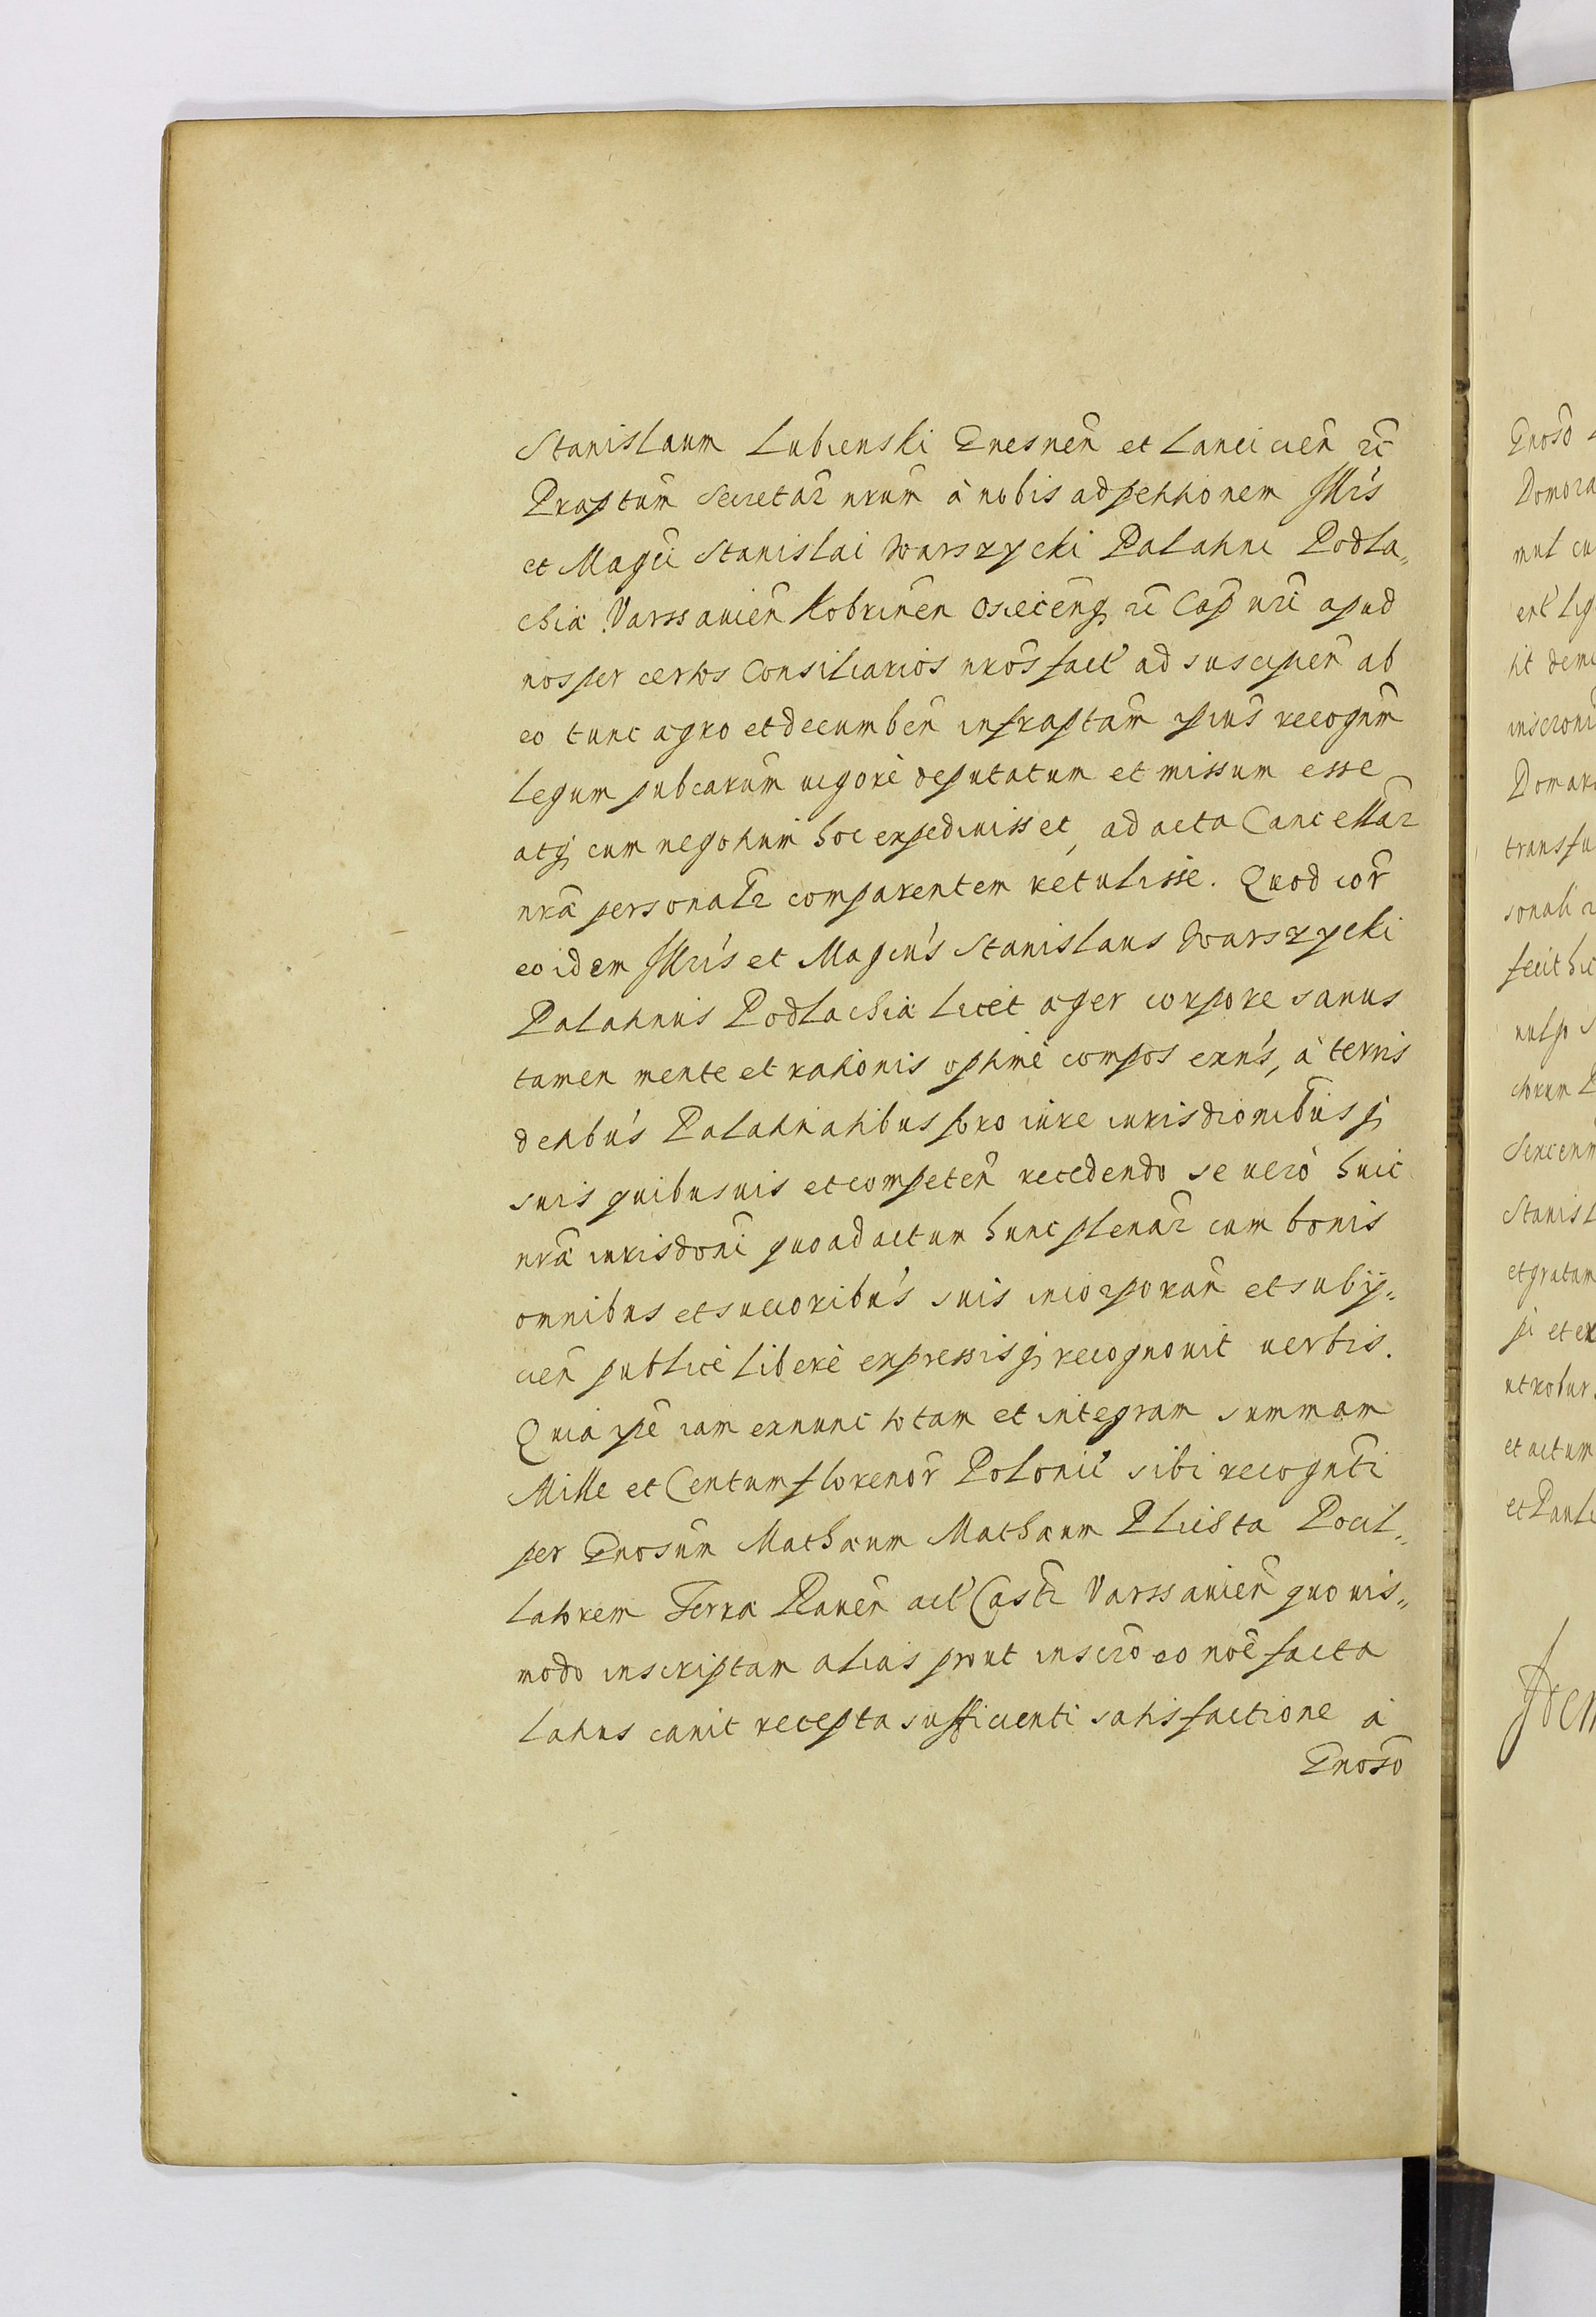 Stanislaum Lubienski Gnesnen̄ et Lancicien̄ rc̄
Præptum̄ Secretar̄ nrum̄ à nobis ad petitionem Illr̄is
et Magci Stanislai Warszycki Palatini Podla„
chiæ Varssauien̄ Kobrinen̄ Osiecenq̢ rc̄ Cap̄ nrī apud
nos per certos Consiliarios nros̄ fact̕ ad suscipen̄ ab
eo tunc ægro et decumben̄ infraptam̄ ipius̄ recognem̄
legum pubcarum̄ uigorè deputatum et missum esse
atq̢ cum negotium̄ hoc expediuisset, ad acta Cancellar̄
nræ personalr̄ comparentem retulisse. Quod cor̄
eo idem Illris̄ et Magcus̄ Stanislaus Warszycki
Palatinus Podlachiæ licet æger corpore sanus
tamen mente et rationis optimè compos exns̄, à terris
detibus̄ Palatinatibus foro iure iurisdionibus̄ q̢
suis quibusuis et competen̄ recedendo se uerò huic
nræ iurisdoni quo ad actum hunc plenar̄ cum bonis
omnibus et succoribus̄ suis incorporan̄ et subij„
cien̄ publicè liberè expressis q̢ recognouit uerbis.
Quia ipe iam exnunc totam et integram summam
Mille et Centum florenor̄ Polonic̕ sibi recogntī
per Gnosum̄ Mathæum Mathæum Plichta Pocil„
latorem Terræ Rauen̄ act̕ Castr̄ Varssauien̄ quouis„
modo inscriptam alias prout inscrō eo noē facta
latius canit recepta sufficienti satisfactione à
Gnosō
Gnosō
Domara
mul cu
ent̕ lig
tit dem
inscroni
Domara
transfu
sonali
fecit hic
nulp
ctorum
Stanisl
et gratam
pi et ex
ut robur
et actum
et Pauli
Item